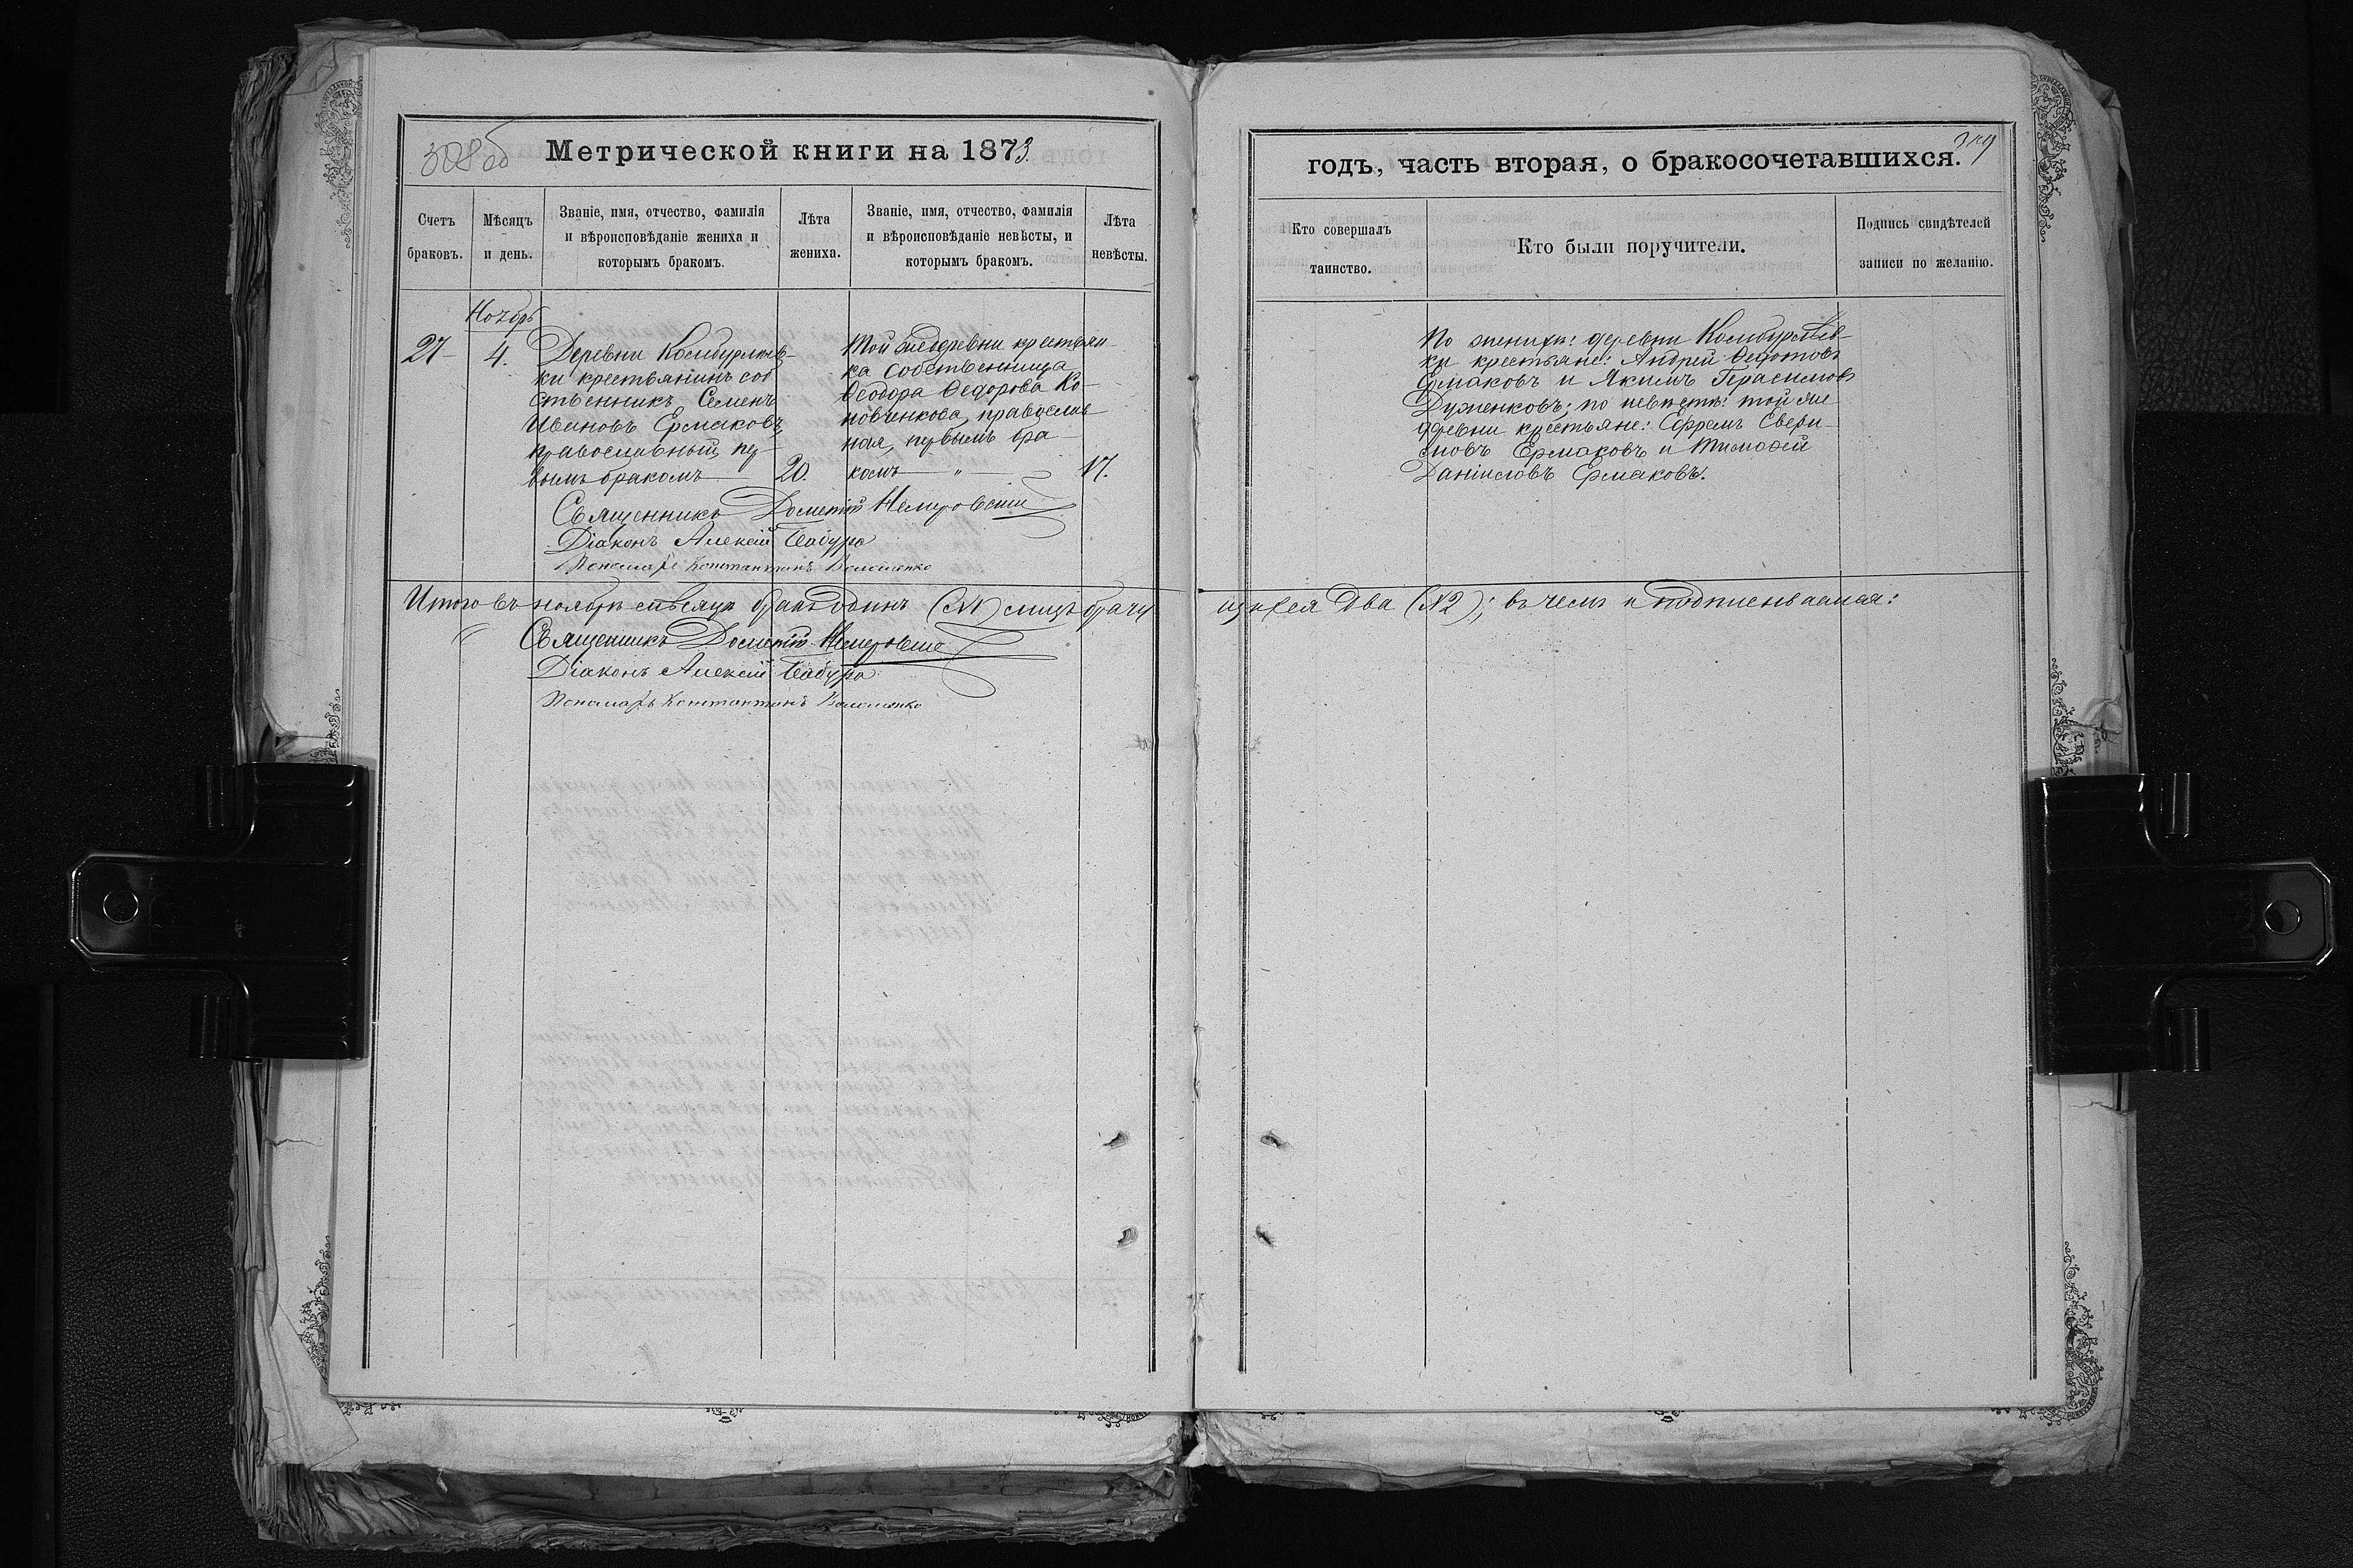 308 об
Метрической книги на 1873.
Счетъ браковъ.
Мѣсяцъ и день.
Званіе, имя, отчество, фамилія
и вѣроисповѣданіе жениха и
которымъ бракомъ.
Лѣта жениха.
Званіе, имя, отчество, фамилія
и вѣроисповѣданіе невѣсты, и
которымъ бракомъ.
Лѣта невѣсты.
Ноябрь
27
4.
Деревни Камбурлѣев-
ки крестьянинъ соб
ственникъ Семенъ
Ивановъ Ермаковъ,
православный, пер-
вымъ бракомъ
20.
Той же деревни крестьян-
ка собственница
Ѳеодора Ѳедорова
православ
ная, первымъ бра-
комъ — „ —
17.
Священникъ Дометій Немировскій
Діаконъ Алексій
Пономарь Константинъ
Итого въ ноябрѣ мѣсяцѣ бракъ одинъ (№1) лицъ брачу
Священникъ Дометій Немировскій
Діаконъ Алексій
Пономарь Константинъ
309
годъ, часть вторая, о бракосочетавшихся.
Кто совершалъ
таинство.
Кто были поручители.
Подпись свидѣтелей
записи по желанію.
По женихѣ: деревни Камбурлѣев-
ки крестьяне: Андрей Ѳедотовъ
Ермаковъ и Якимъ Герасимовъ
Дуженковъ; по невѣстѣ: той же
деревни крестьяне: Ефремъ
Ермаковъ и Тимофей
Даніиловъ Ермаковъ.
щихся два (№2); въ чемъ и подписываемся: